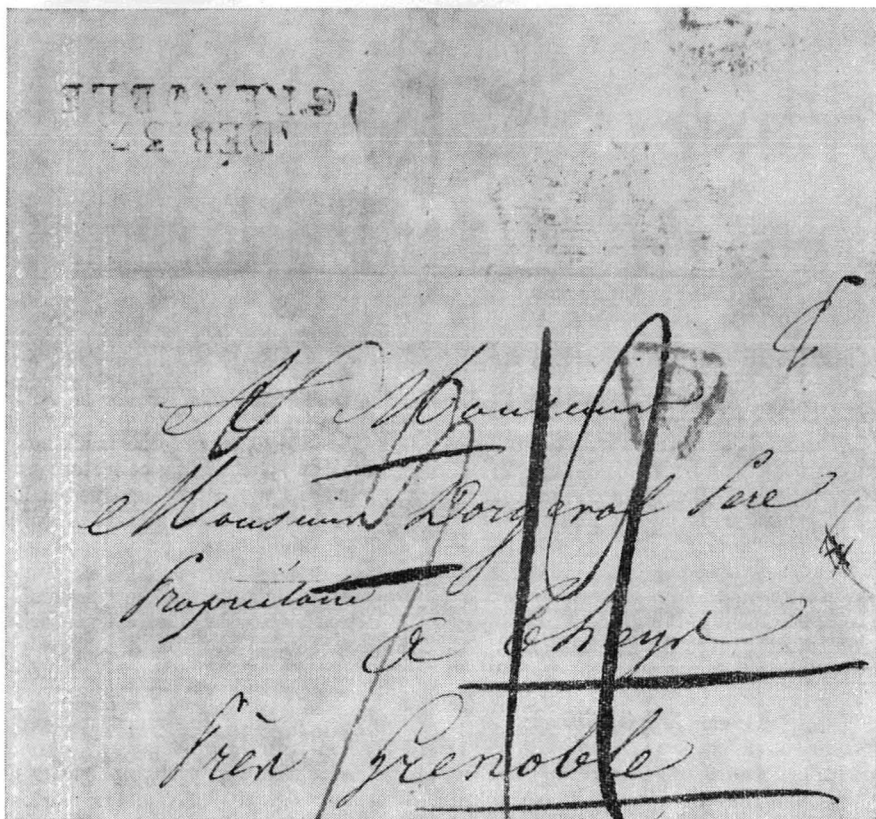 DÉB 37
GRENOBLE
P
A Monsieur
Monsieur Dorgeval Pere
Propriétaire
a Theys
Près Grenoble